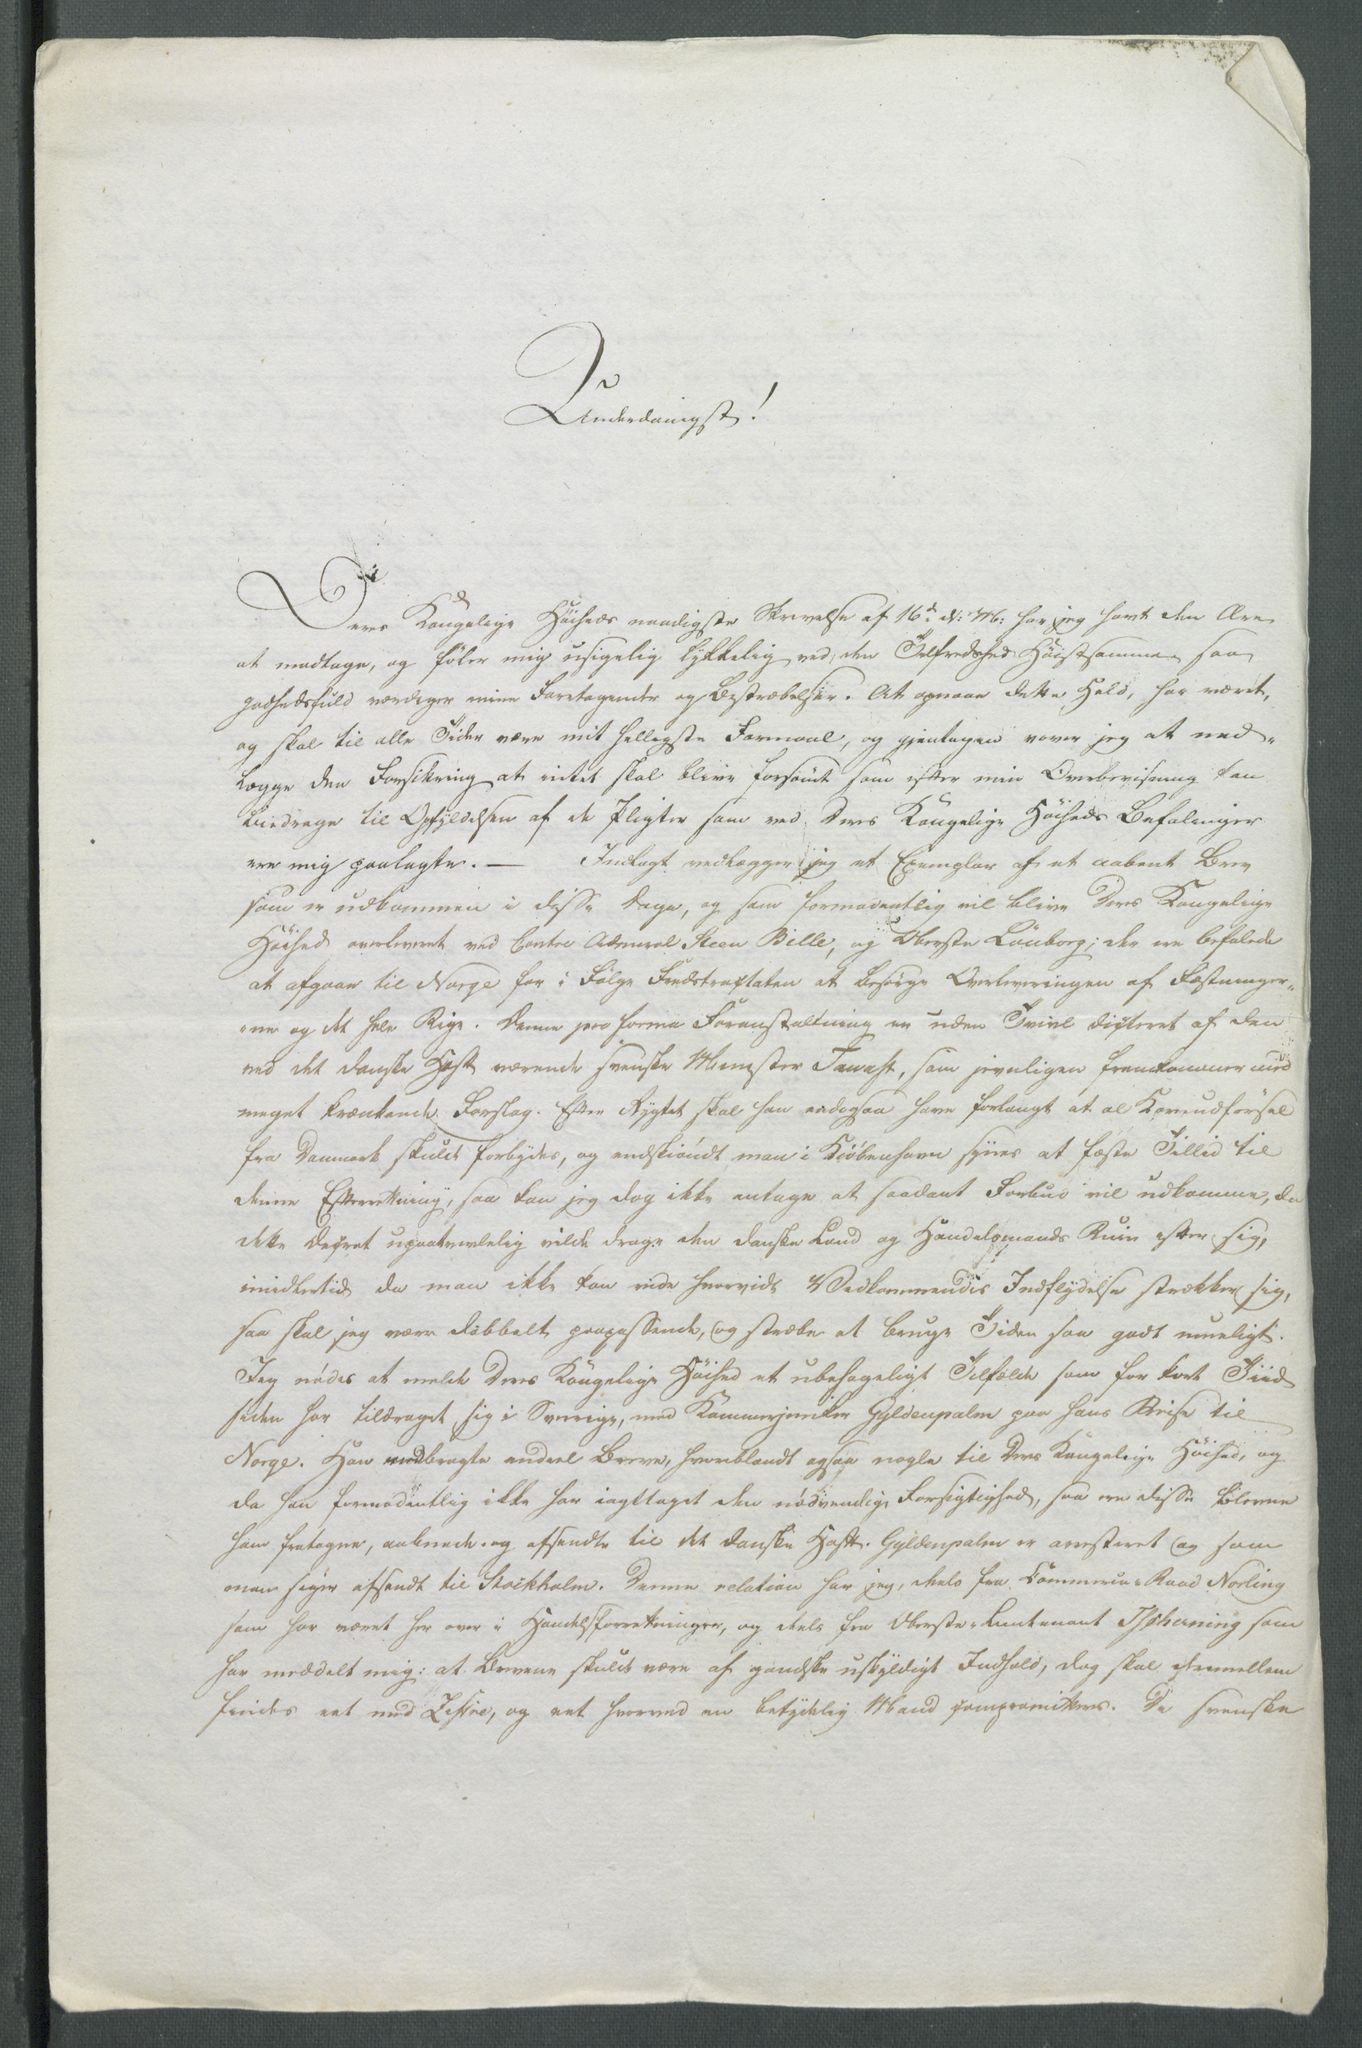 Underdanigst!
Deres Kongelige Höiheds naadigste Skrivelse af 16d. d: M: har jeg havt den Ære
at modtage, og föler mig usigelig lykkelig ved den Tilfredshed Höistsamme saa
godhedsfuld værdiger mine Foretagender og Bestræbelser. At opnaae dette Held, har været,
og skal til alle Tider være mit helligste Formaal, og gientagen vover jeg at ned-
lægge den Forsikring at intet skal blive forsömt som efter min Overbeviisning kan
bidrage til Opfyldelsen af de Pligter som ved Deres Kongelige Höiheds Befalinger
ere mig paalagte. — Indlagt vedlægger jeg et Exemplar af et aabent Brev
som er udkommen i disse Dage, og som formodentlig vil blive Deres Kongelige
Höihed overleveret ved Contre Admiral Steen Bille, og Oberste Lönborg; der ere befalede
at afgaae til Norge for i Fölge Fredstractaten at besörge Overleveringen af Fæstninger-
ne og det hele Rige. Denne pro forma Foranstaltning er uden Tvivl dicteret af den
ved det danske Hoff værende svenske Minister Tawast, som jevnligen fremkommer med
meget krænkende Forslag. Efter Rygtet skal han endogsaa have forlangt at al Kornudförsel
fra Danmark skulde forbydes, og endskiöndt man i Kiöbenhavn synes at fæste Tillid til
denne Efterretning, saa kan jeg dog ikke antage at saadant Forbud vil udkomme, da
dette Decret upaatvivlelig vilde drage den danske Land og Handelsmands Ruin efter sig,
imidlertid da man ikke kan vide hvorvidt Vedkommendes Indflydelse strækker sig,
saa skal jeg være dobbelt paapassende, og stræbe at bruge Tiden saa godt mueligt.
Jeg nödes at melde Deres Kongelige Höihed et ubehageligt Tilfælde som for kort Tiid
siden har tildraget sig i Sverrige, med Kammerjunker Gyldenpalm paa hans Reise til
Norge. Han medbragte endeel Breve, hvoriblandt ogsaa nogle til Deres Kongelige Höihed, og
da han formodentlig ikke har iagttaget den nödvendige Forsigtighed, saa ere disse blevne
ham fratagne, aabnede og afsendte til det danske Hoff. Gyldenpalm er arresteret og som
man siger afsendt til Stockholm. Denne relation har jeg, deels fra Commerce-Raad Norling
som har været her over i Handelsforretninger, og deels fra Oberste-Lieutenant Tscherning som
har meddelt mig: at Brevene skulde være af gandske uskyldigt Indhold, dog skal derimellem
findes eet med Zifre, og eet hvorved en betydelig Mand compromitteres. De svenske